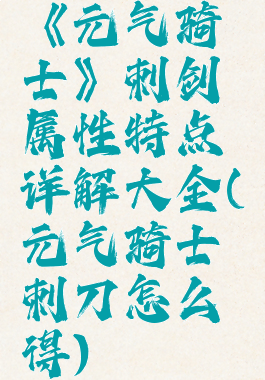 《元气骑
士》刺剑
属性特点
详解大全(
元气骑士
刺刀怎么
得)